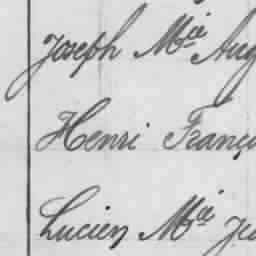 Joseph Mie Aug
Henri Franç
Lucien Mie Ju